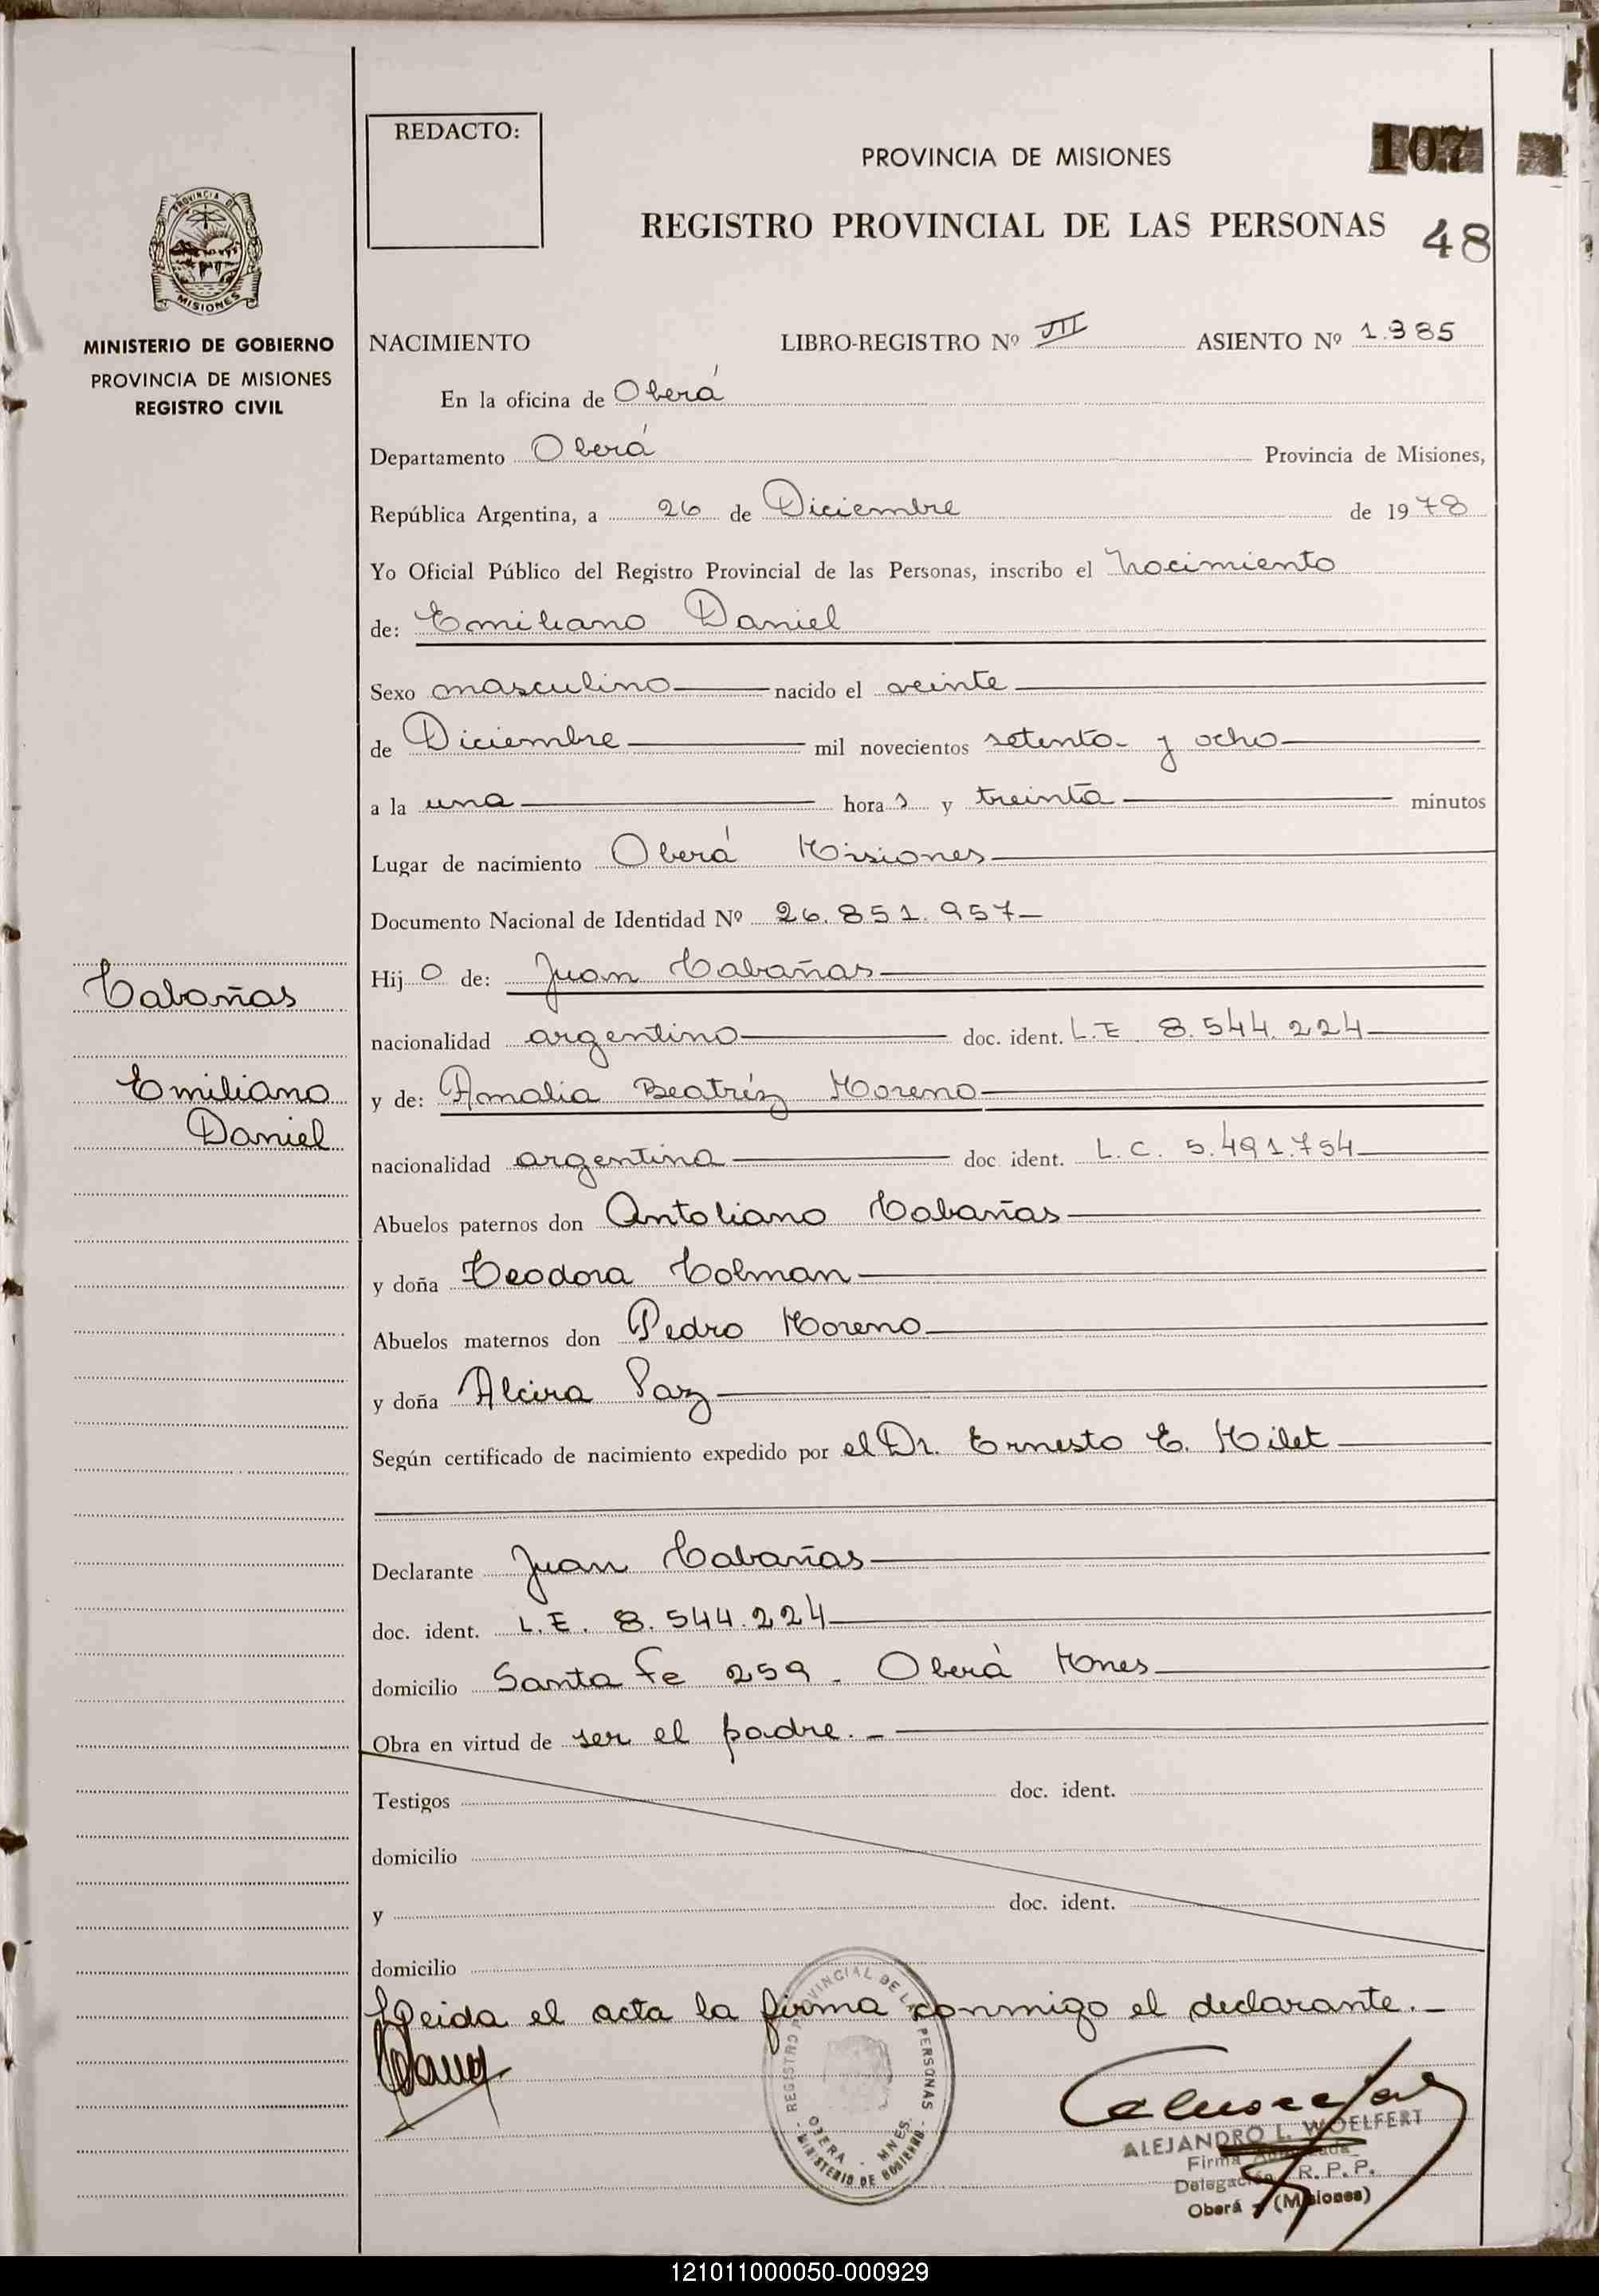 REDACTO:
PROVINCIA DE MISIONES
107
REGISTRO PROVINCIAL DE LAS PERSONAS
48
PROVINCIA DE
MISIONES
MINISTERIO DE GOBIERNO
PROVINCIA DE MISIONES
REGISTRO CIVIL
NACIMIENTO LIBRO-REGISTRO Nº VII ASIENTO Nº 1.385
En la oficina de Oberá
Departamento Oberá Provincia de Misiones,
República Argentina, a 26 de Diciembre de 1978
Yo Oficial Público del Registro Provincial de las Personas, inscribo el Nacimiento
de: Emiliano Daniel
Sexo masculino nacido el veinte
de Diciembre mil novecientos setenta y ocho
a la una hora s y treinta minutos
Lugar de nacimiento Oberá Misiones
Documento Nacional de Identidad Nº 26.851.957
Cabañas
Emiliano
Daniel
Hij o de: Juan Cabañas
nacionalidad argentino doc. ident. L.E. 8.544.224
y de: Amalia Beatríz Moreno
nacionalidad argentina doc. ident. L.C. 5.491.754
Abuelos paternos don Antoliano Cabañas
y doña Teodora Colman
Abuelos maternos don Pedro Moreno
y doña Alcira Paz
Según certificado de nacimiento expedido por el Dr. Ernesto E. Milet
Declarante Juan Cabañas
doc. ident. L.E. 8.544.224
domicilio Santa Fe 259 - Oberá Mnes
Obra en virtud de ser el padre. -
Testigos doc. ident.
domicilio
y doc. ident.
domicilio
Leida el acta la firma conmigo el declarante. -
REGISTRO PROVINCIAL DE LAS PERSONAS
OBERA - MNES.
MINISTERIO DE GOBIERNO
ALEJANDRO L. WOELFERT
Firma
Delegación R. P. P.
Oberá - (Misiones)
121011000050-000929